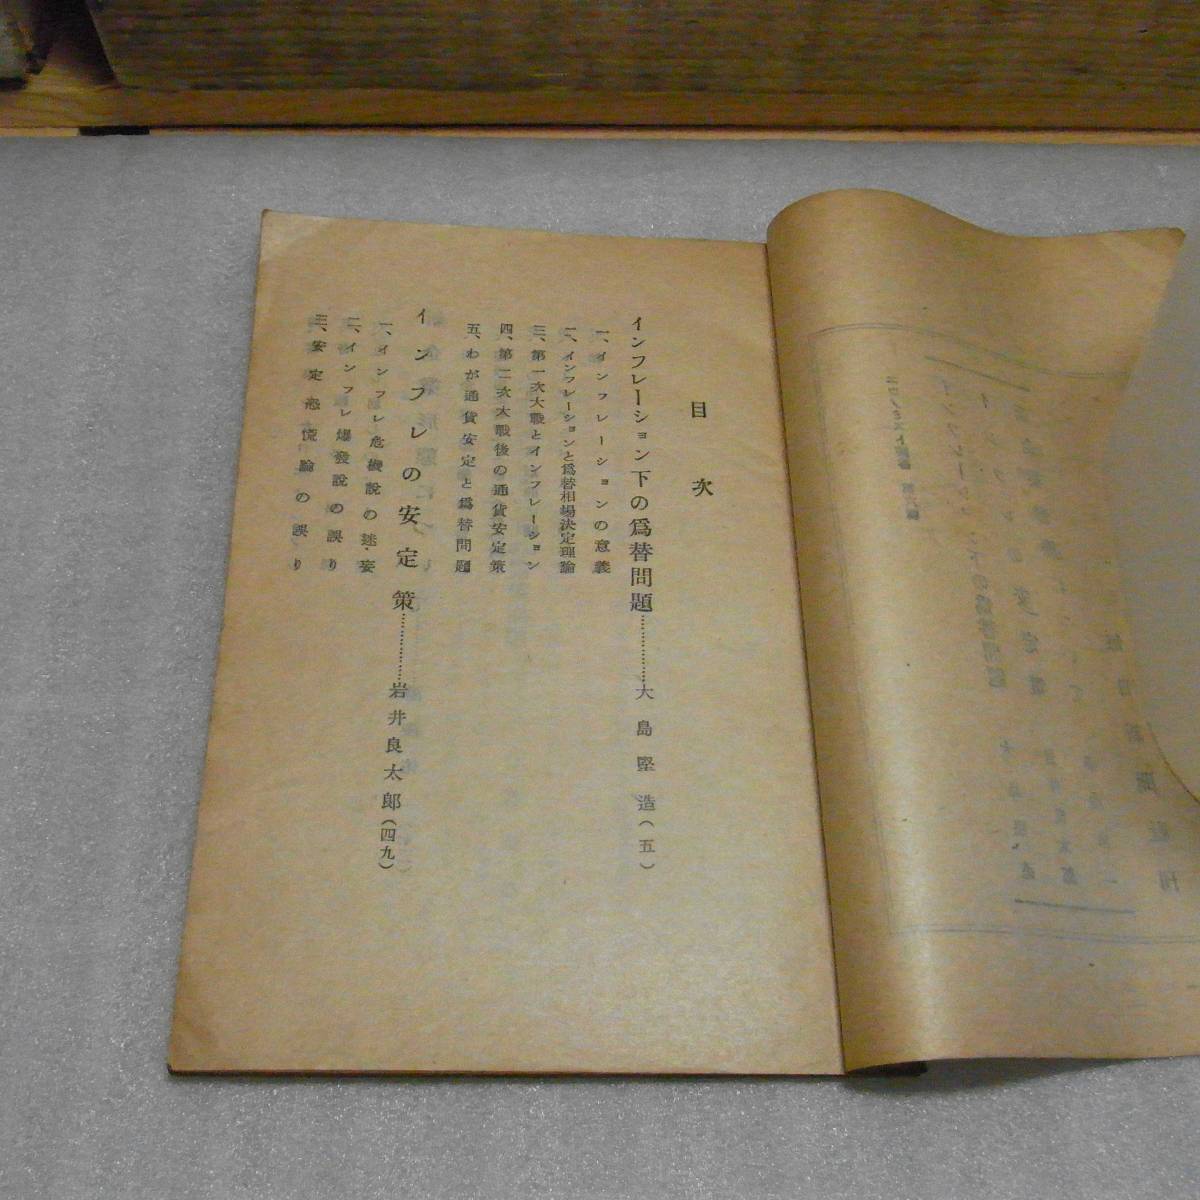 目次
インフレーション下の爲替問題……………大島堅造(五)
一、インフレーションの意義
二、インフレーションと爲替相場決定理論
三、第一次大戰とインフレーション
四、第二次大戰後の通貨安定策
五、わが通貨安定と爲替問題
インフレの安定策……………岩井良太郎(四九)
一、インフレ危機說の迷妄
二、インフレ爆發說の誤り
三、安定恐慌論の誤り